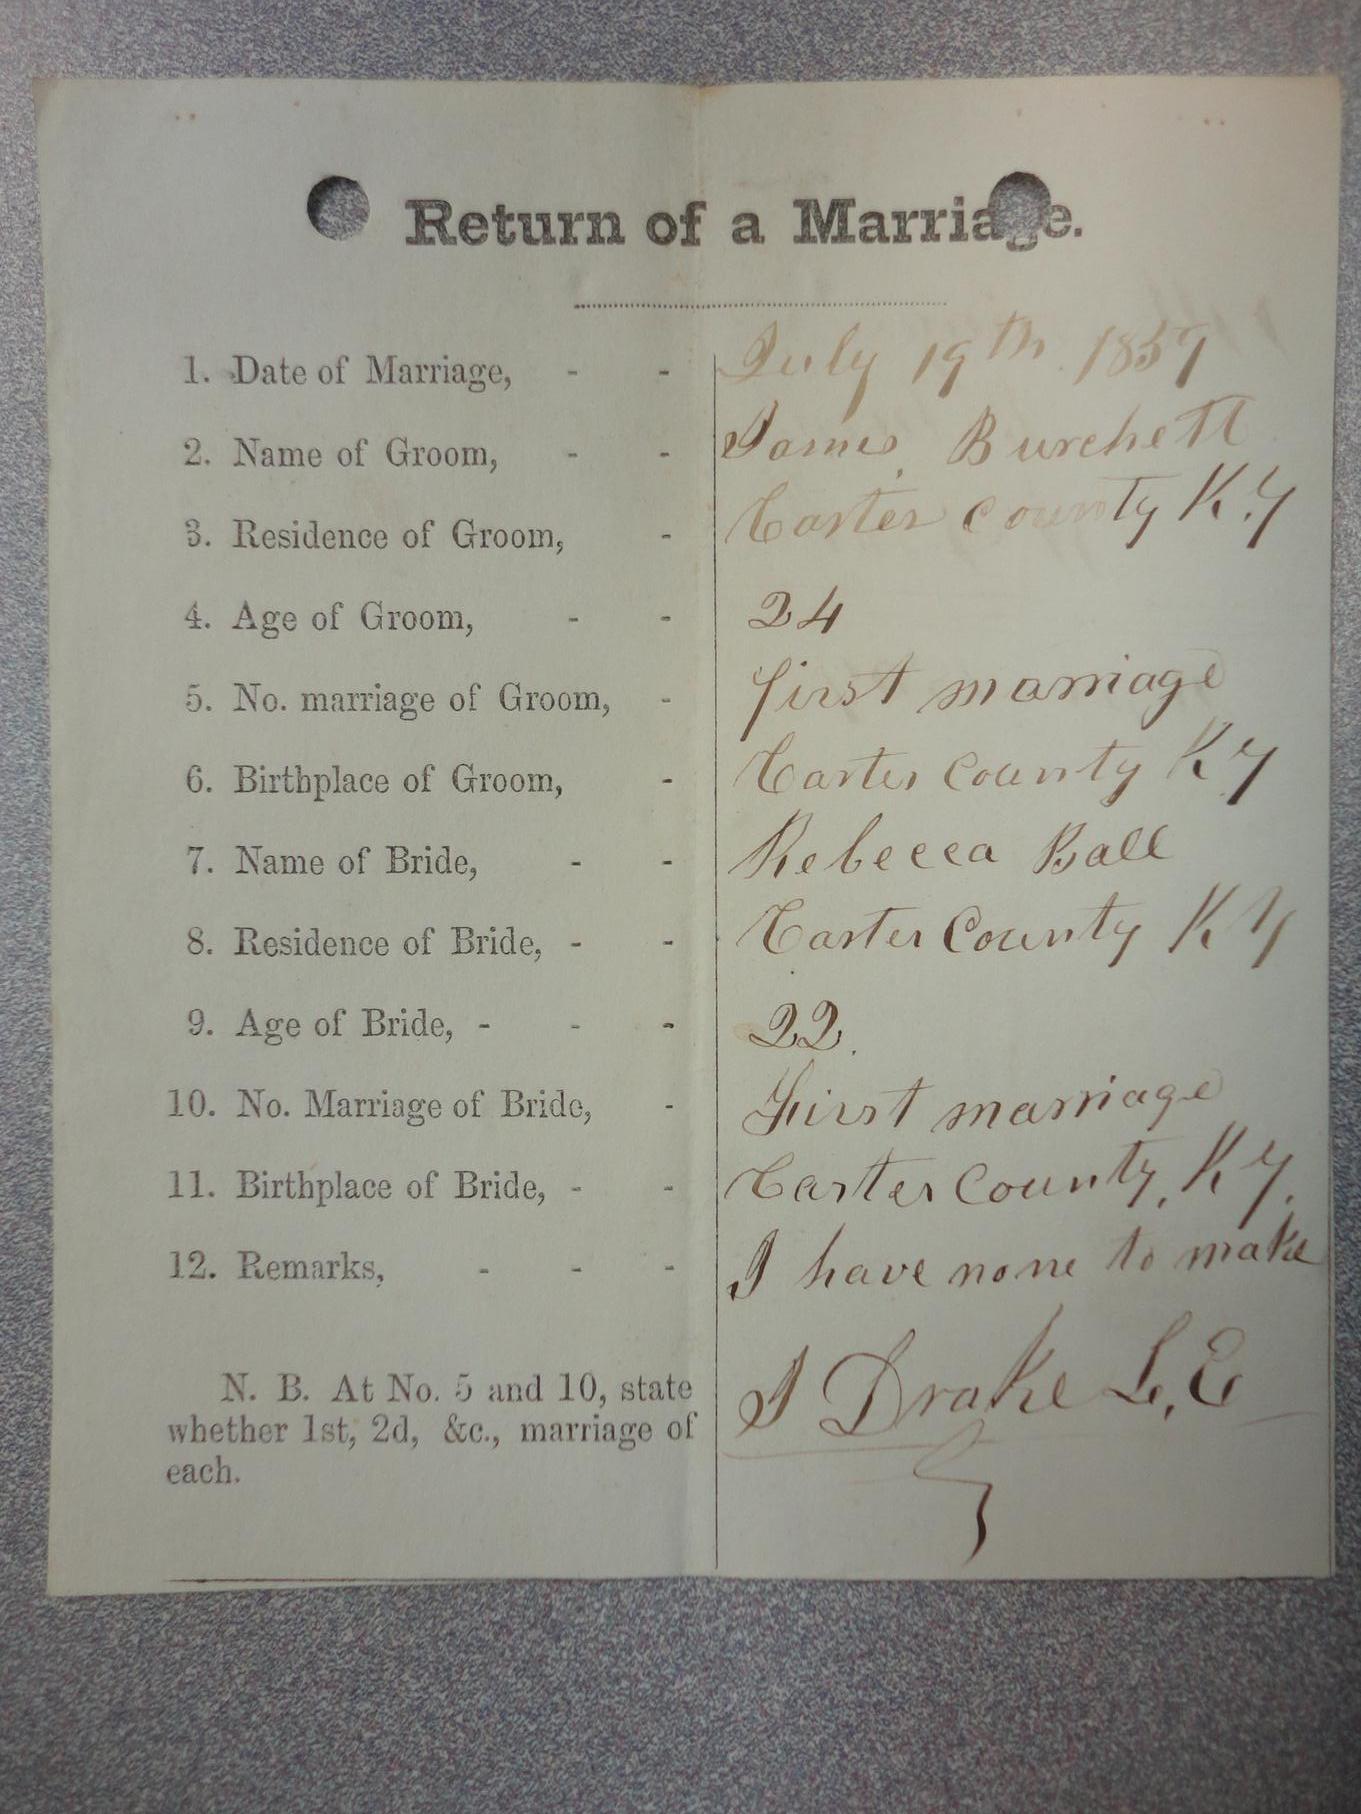 Return of a Marriage.
1. Date of Marriage, - - July 19th 1859
2. Name of Groom, - - James Burchett
3. Residence of Groom, - Carter County K.Y
4. Age of Groom, - - 24
5. No. marriage of Groom, - first marriage
6. Birthplace of Groom, - Carter County KY
7. Name of Bride, - - Rebecca Ball
8. Residence of Bride, - - Carter County KY
9. Age of Bride, - - - 22.
10. No. Marriage of Bride, - First marriage
11. Birthplace of Bride, - - Carter County, KY.
12. Remarks, - - - I have none to make
N. B. At No. 5 and 10, state
whether 1st, 2d, &c., marriage of
each.
I Drake L, E